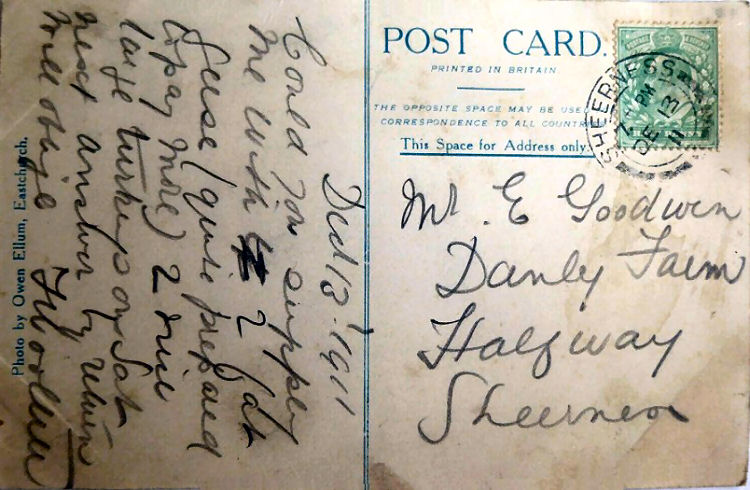 Could you supply
me with 2 fat
Geese (quite prepared
to pay more) 2 nice
large turkeys on Sat
next answer by return
will oblige
13 1911
Photo by Owen Ellum, Eastchurch.
POST CARD.
PRINTED IN BRITAIN
THE OPPOSITE SPACE MAY BE USED
CORRESPONDENCE TO ALL COUNTRIES
This Space for Address only.
SHEERNESS
7 PM
DE 13
11
Mr. E Goodwin
Danly Farm
Halfway
Sheerness